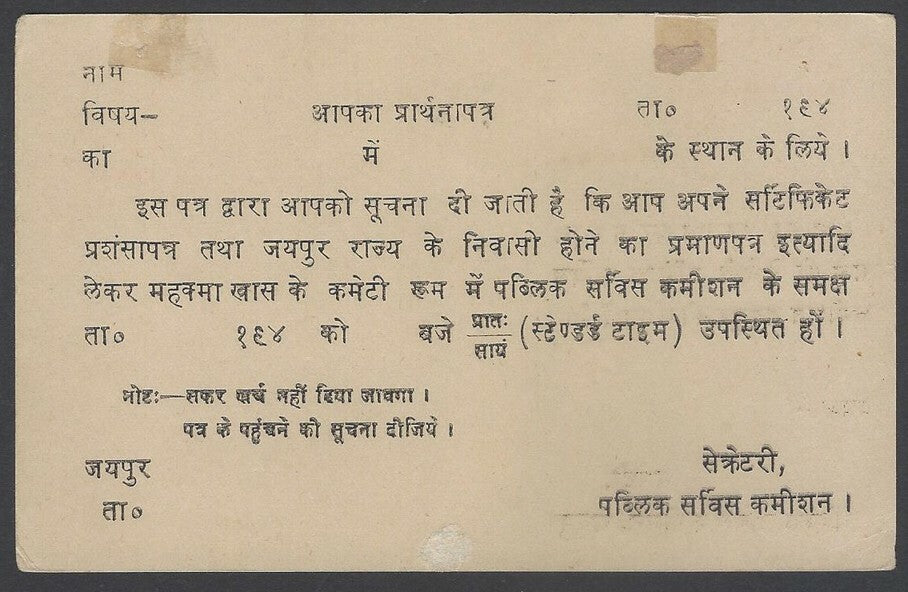 नाम
विषय— आपका प्रार्थनापत्र ता० १९४
का में के स्थान के लिये ।
इस पत्र द्वारा आपको सूचना दी जाती है कि आप अपने सर्टिफिकेट
प्रशंसापत्र तथा जयपुर राज्य के निवासी होने का प्रमाणपत्र इत्यादि
लेकर महक्मा खास के कमेटी रूम में पब्लिक सर्विस कमीशन के समक्ष
ता० १९४ को बजे प्रातः/सायं (स्टेण्डर्ड टाइम) उपस्थित हों ।
नोटः—सफर खर्च नहीं दिया जावगा ।
पत्र के पहुंचने की सूचना दीजिये ।
जयपुर सेक्रेटरी,
ता० पब्लिक सर्विस कमीशन ।